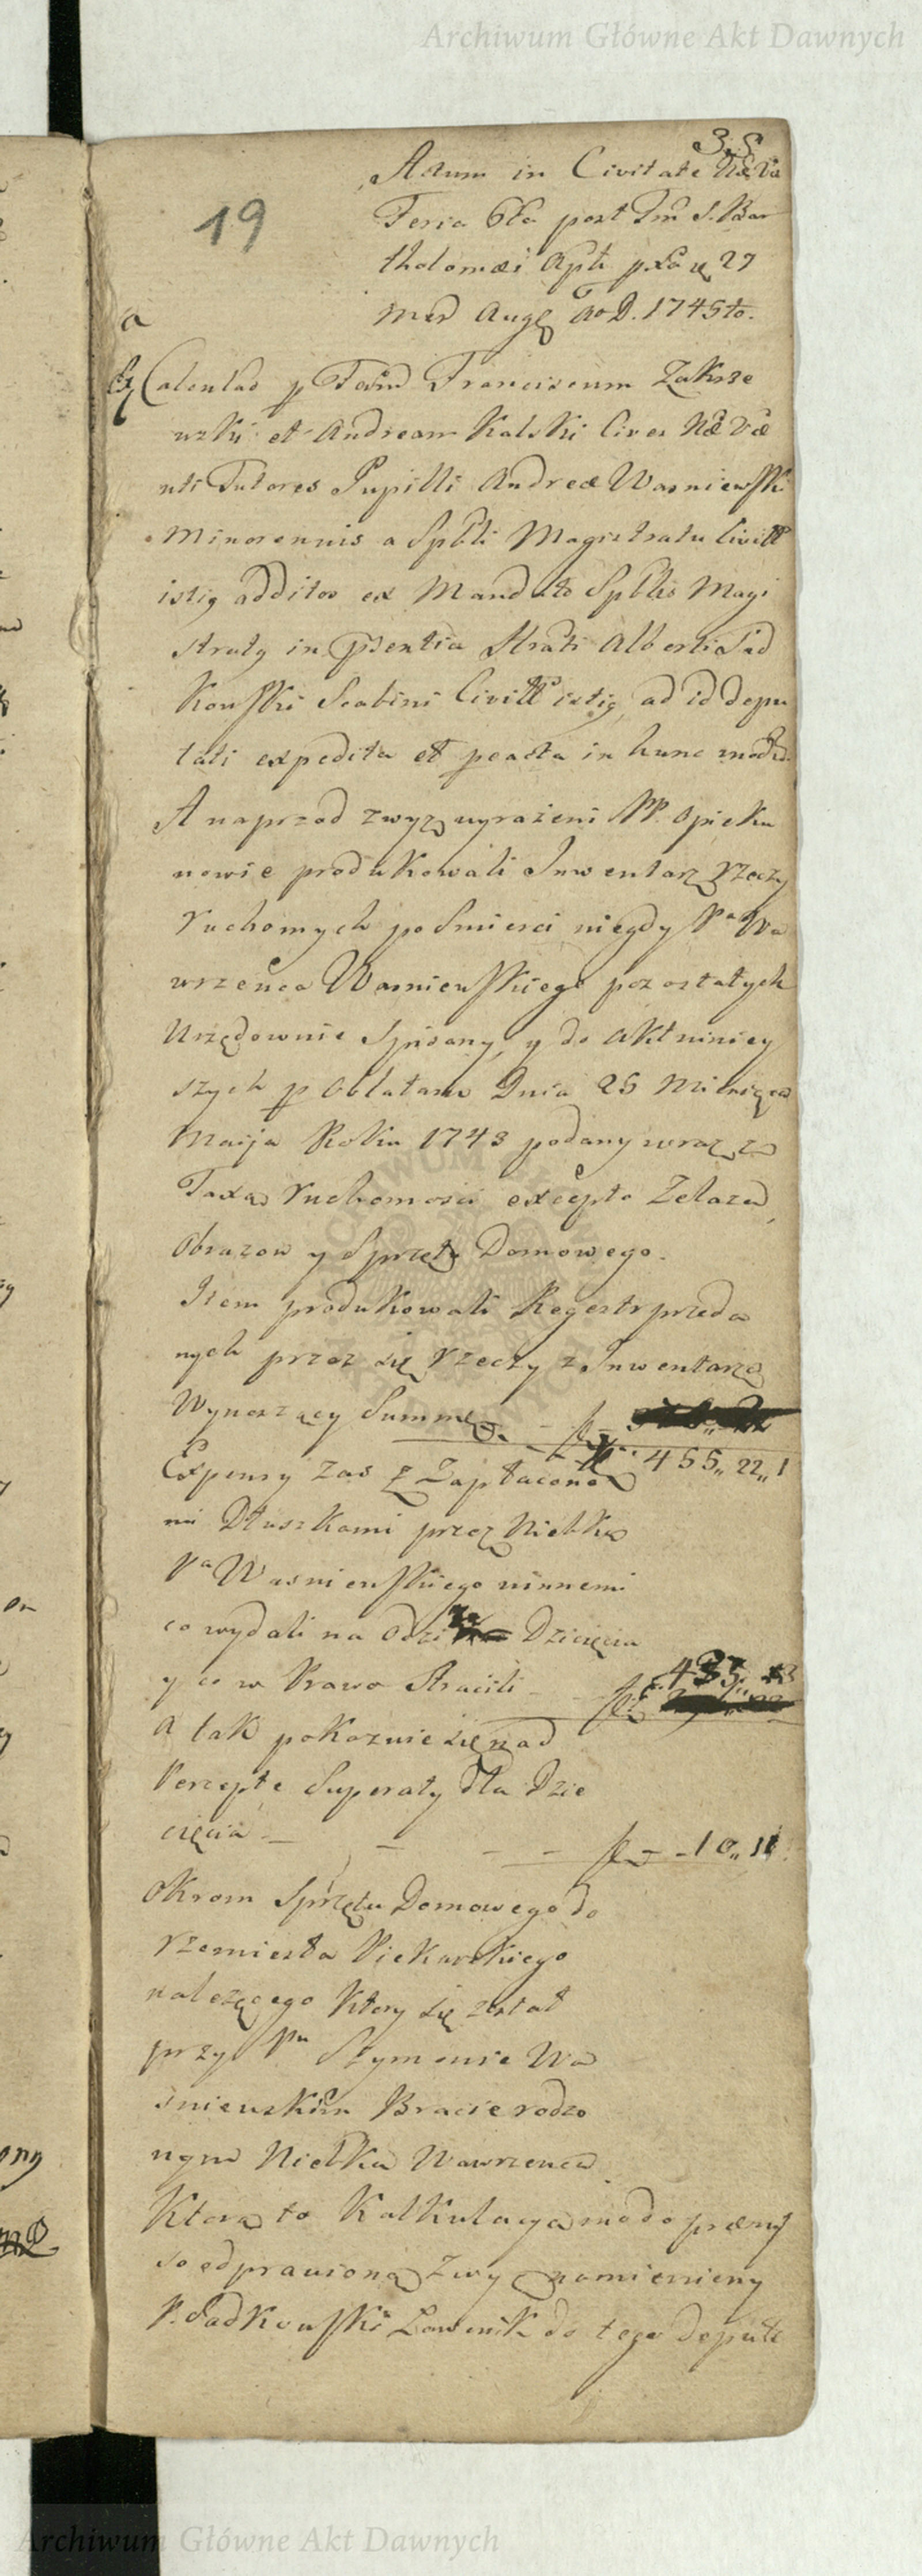 Archiwum Główne Akt Dawnych
35
19
Actum in Civitate Næ Væ
Feria 6ta post Fm S. Bar
tholomæi Apli 27
Aug Ao D. 1745to.
a
Calculao p Fam Franciscum Zakrze
wski et Andream Kalski Cives Næ Væ
uti Tutores Pupilli Andreæ Wasniewski
Minorennis a Spbli Magistratu Civitt
istig additos ex Mandato Spblis Magi
stratg in Psentia Alberti Sad
kowski Scabini Civitt istig ad id depu
tati expedita et peacta in hunc modu.
A naprzod zwyz wyrażeni PP. Opieku
nowie produkowali Inwentarz rzeczy
ruchomych po Smierci niegdy Pa Wa
wrzenca Wasniewskiego pozostałych
Urzędownie Spisany, y do Akt niniey
szych p Oblatam Dnia 25 Miesięca
Maija Roku 1743 podany wraz z
Taxą ruchomosci excepto Zelaza,
Obrazow y Sprzętu Domowego.
Item produkowali Regestr przeda
nych przez się rzeczy z Inwentarza
Wynoszący Summę - - f
455,, 22,, 1
Expensy zas z Zapłacone
mi Dłuszkami przez Niebka
Pa Wasniewskiego winnemi
co wydali na Dziecięcia
y co w Prawo Stracili -
a tak pokazuie się nad
Perceptę Superaty dla Dzie
cięcia - - - - f - 10,,
Okrom Sprzętu Domowego do
rzemiesła Piekarskiego
należącego ktory się został
przy Pu Szymonie Wa
śniewskim Bracie rodzo
nym Niebka Wawrzenca
Ktorą to Kalkulacyą modo præmis
so odprawioną Zwyż namieniony
P. Sadkowski Ławnik do tego deput
Archiwum Główne Akt Dawnych